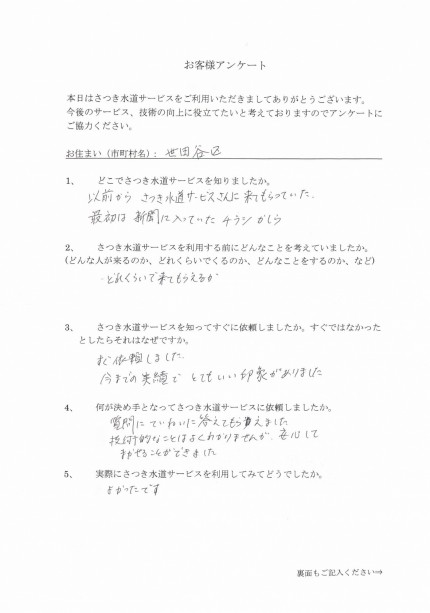 お客様アンケート
本日はさつき水道サービスをご利用いただきましてありがとうございます。
今後のサービス、技術の向上に役立てたいと考えておりますのでアンケートに
ご協力ください。
お住まい（市町村名）: 世田谷区
1、 どこでさつき水道サービスを知りましたか。
以前から さつき水道サービスさんに来てもらっていた。
最初は 新聞に入っていた チラシかしら
2、 さつき水道サービスを利用する前にどんなことを考えていましたか。
(どんな人が来るのか、どれくらいでくるのか、どんなことをするのか、など)
どれくらいで来てもらえるか
3、 さつき水道サービスを知ってすぐに依頼しましたか。すぐではなかった
としたらそれはなぜですか。
すぐ依頼しました。
今までの実績で とてもいい印象がありました
4、 何が決め手となってさつき水道サービスに依頼しましたか。
質問にていねいに答えてもらえました
技術的なことはよくわかりませんが、安心して
まかせることができました
5、 実際にさつき水道サービスを利用してみてどうでしたか。
よかったです
裏面もご記入ください⇒